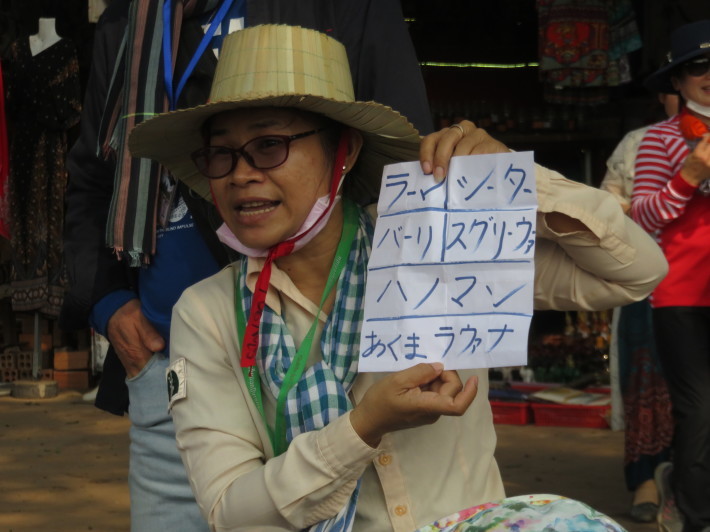 ラーン シータ
バーリ スグリーヴァ
ハノマン
あくま ラヴァナ